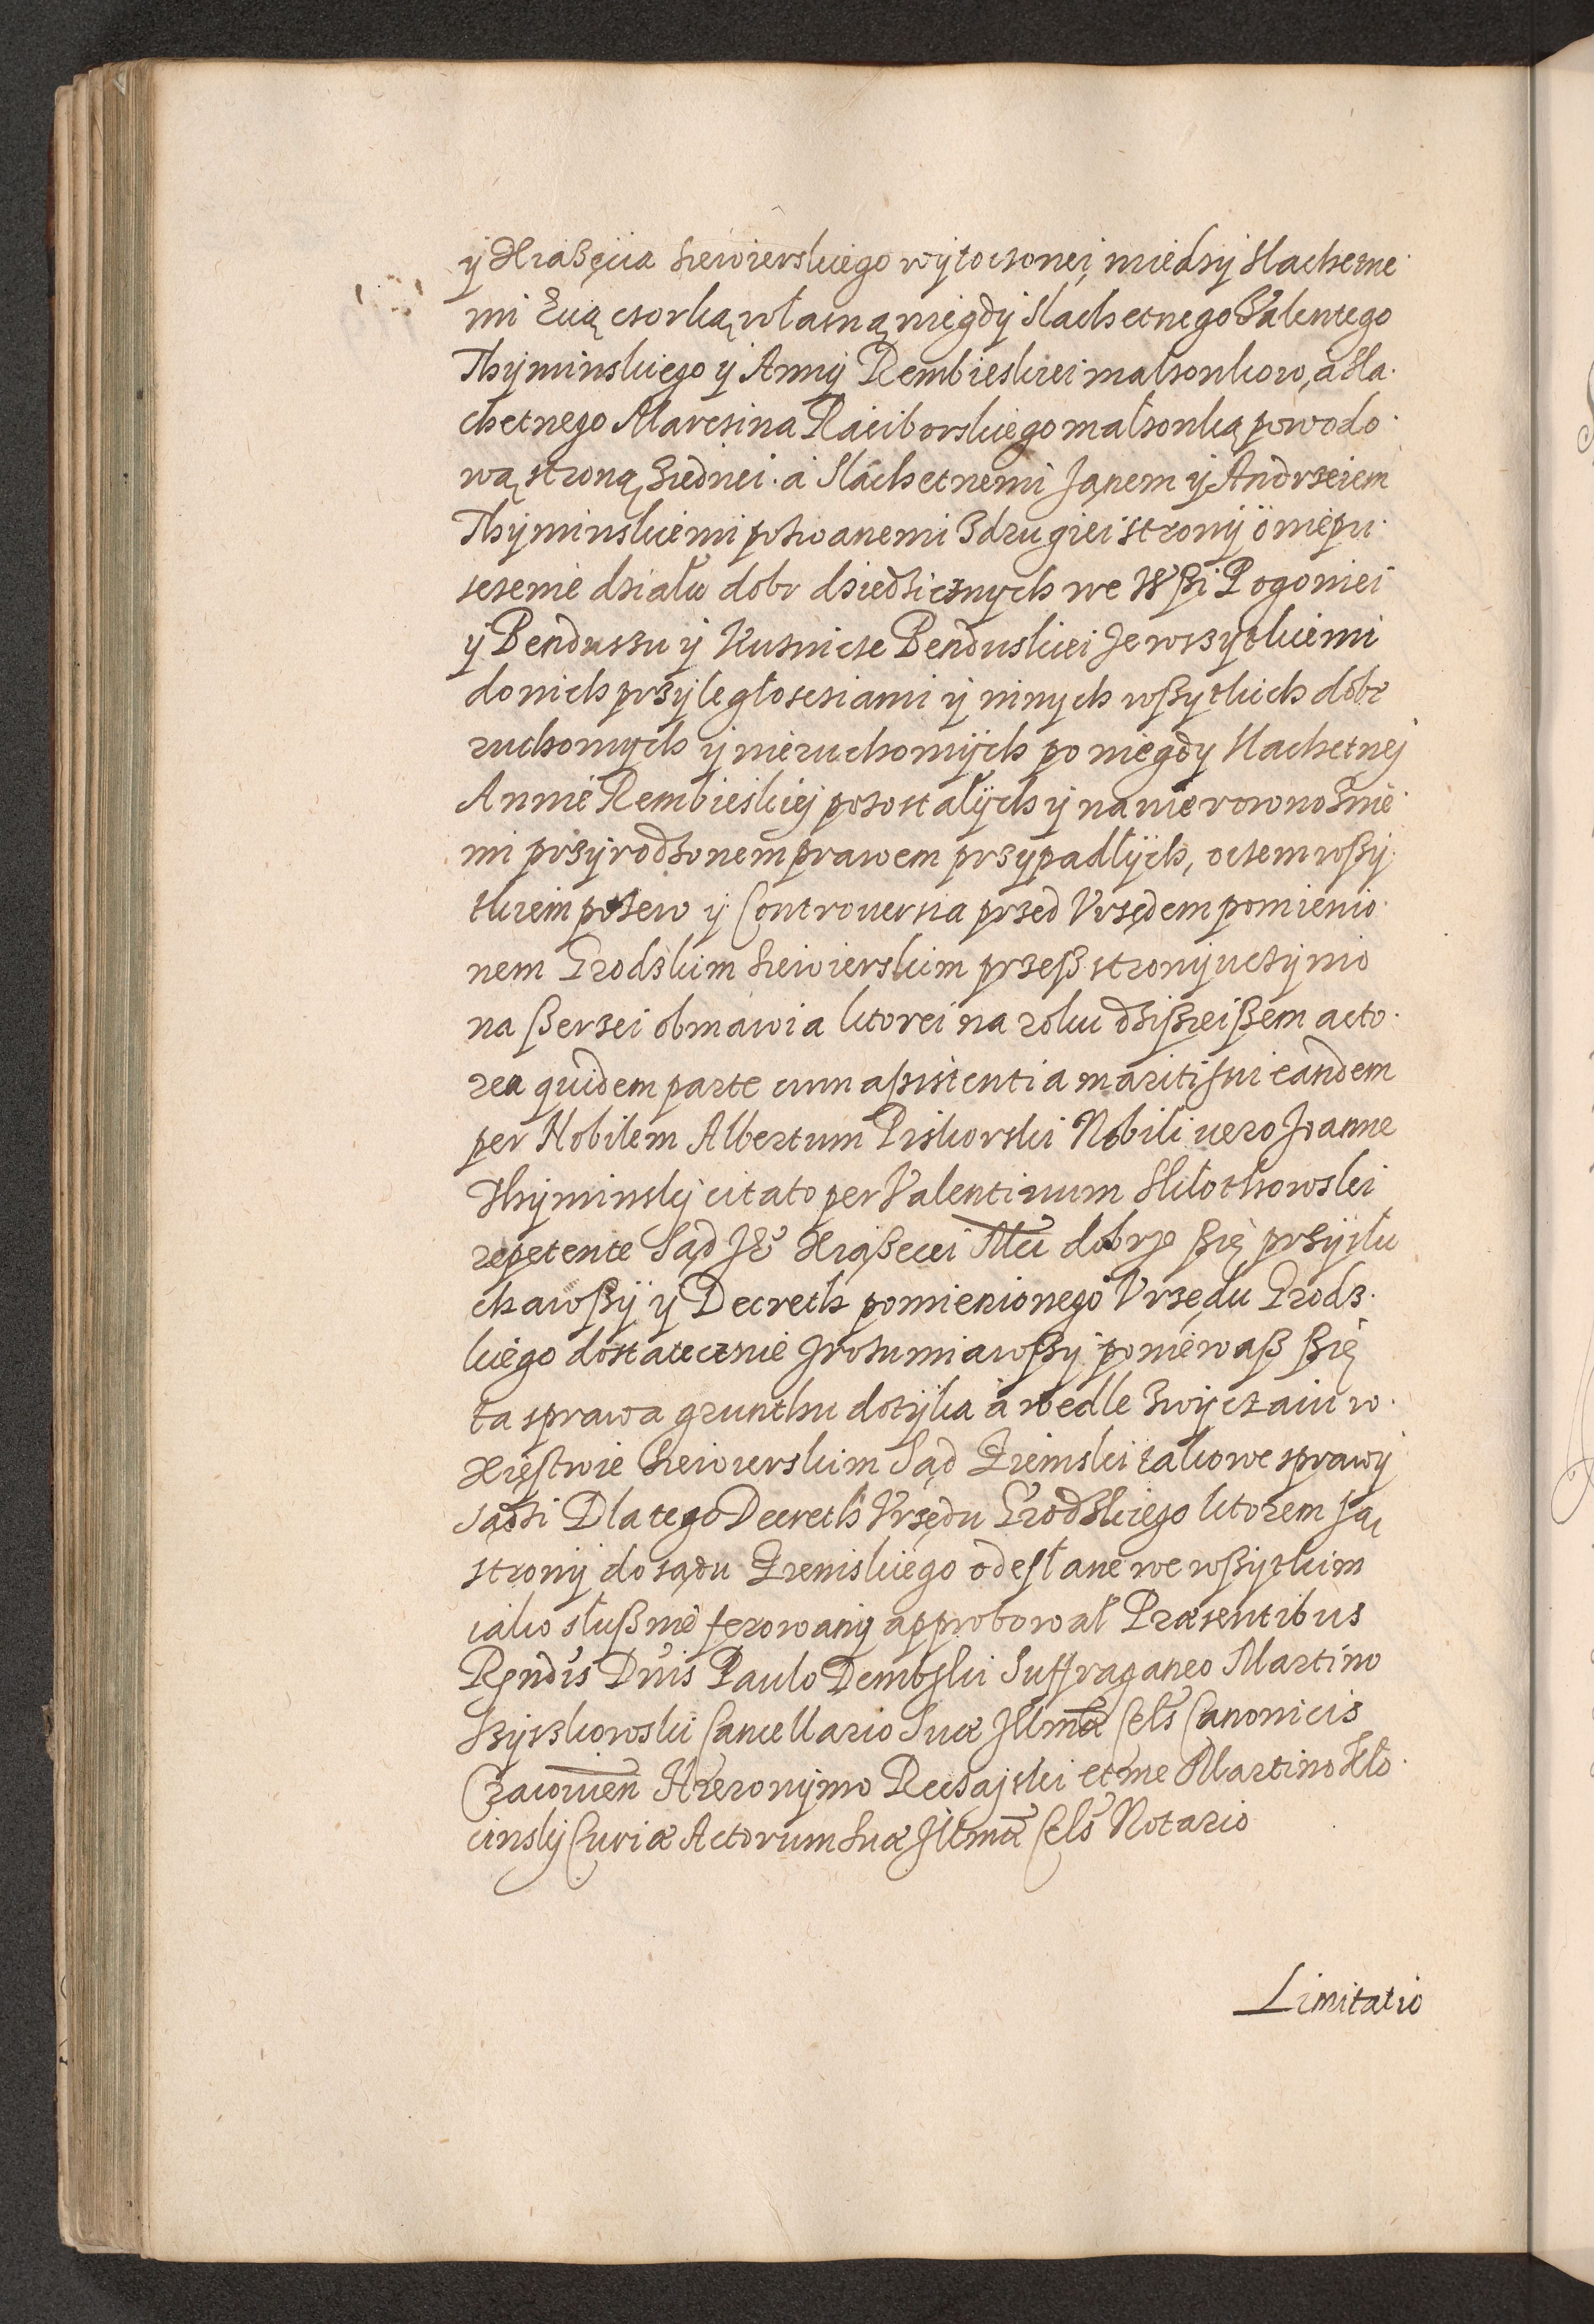 ÿ Xiążęcia Siewierskiego wÿtoczonei, miedzÿ slachetne
mi Ewą czorką własną niegdÿ Slachetnego Walentego
Thÿminskiego ÿ Annÿ Rembieskiei małzonkow, á Sla
chetnego Marczina Raciborskiego małzonką powodo
wą stroną z iednei. á Slachetnemi Janem ÿ Andrzeiem
Thÿminskiemi pozwanemi z drugiei stronÿ o niepu
sczenie działu dobr dziedzicznÿch we Wsi Pogoniei
ÿ Bendussu ÿ Kuznicze Benduskiei ze wszytkiemi
do nich przÿległosciami ÿ innych wßytkich dobr
ruchomych ÿ nieruchomÿch po niegdy slachetnej
Annie Rembieskiej pozostałÿch ÿ na nie rowno znie
mi przÿrodzonem prawem przypadłÿch, oczem wßÿ
tkiem pozew ÿ Controuersia przed Vrzędem pomienio
nem Grodzkim Siewierskim przeß stronÿ uczÿnio
na ßerzei obmawia ktorei na roku dzißieißem acto
rea quidem parte cum assistentia mariti sui eandem
per Nobilem Albertum Piskorski Nobili uero Joanne
Thÿminskÿ citato per Valentinum Skłothowski
repetente Sąd Je͠ Xiążecei Mci dobrze ßię przÿsłu
chawßÿ ÿ Decreth pomienionego Vrzędu Grodz
kiego dostatecznie zrozumiawßÿ poniewaß ßię
ta sprawa grunthu dotÿka á wedle zwÿczaiu w
Xięstwie Siewierskim Sąd Ziemski takowe sprawÿ
sądzi Dla tego Decreth Vrzędu Grodzkiego ktorem są
stronÿ do sądu Ziemskiego odesłane we wßÿtkim
iako słußnie ferowanÿ approbował Præsentibus
Rṇdis Dṇis Paulo Dembski Suffraganeo Martino
Szyszkowski Cancellario Suæ Illmæ Cels Canonicis
Cracouien Hieronÿmo Reczajski et me Martino Kło
cinskÿ Curiæ Actorum Suæ Illmæ Cels Notario
Limitatio